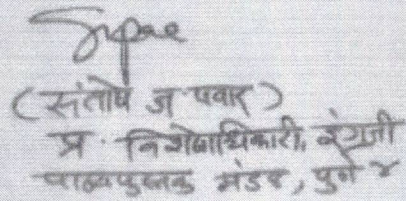 (संतोष ज पवार)
प्र. विशेषाधिकारी, इंग्रजी
पाठ्यपुस्तक मंडळ, पुणे ४